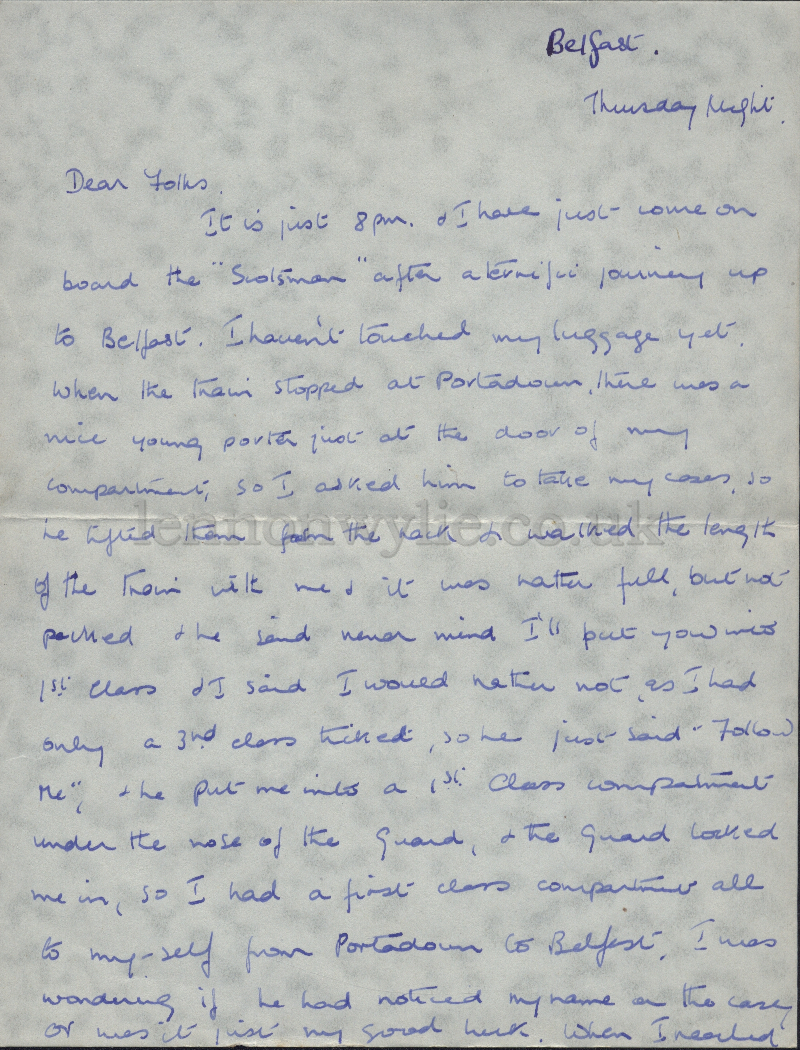 Belfast.
Thursday Night.
Dear Folks.
It is just 8pm. & I have just come on
board the "Scotsman" after a terrific journey up
to Belfast. I haven't touched my luggage yet.
When the train stopped at Portadown, there was a
nice young porter just at the door of my
compartment, so I asked him to take my cases, so
he lifted them from the rack & walked the length
lennonwylie.co.uk
of the train with me & it was rather full, but not
packed & he said never mind I'll put you into
1st class & I said I would rather not, as I had
only a 3rd class ticket, so he just said "Follow
Me", & he put me into a 1st Class compartment
under the nose of the Guard, & the Guard locked
me in, so I had a first class compartment all
to my-self from Portadown to Belfast. I was
wondering if he had noticed my name on the case,
or was it just my good luck. When I reached